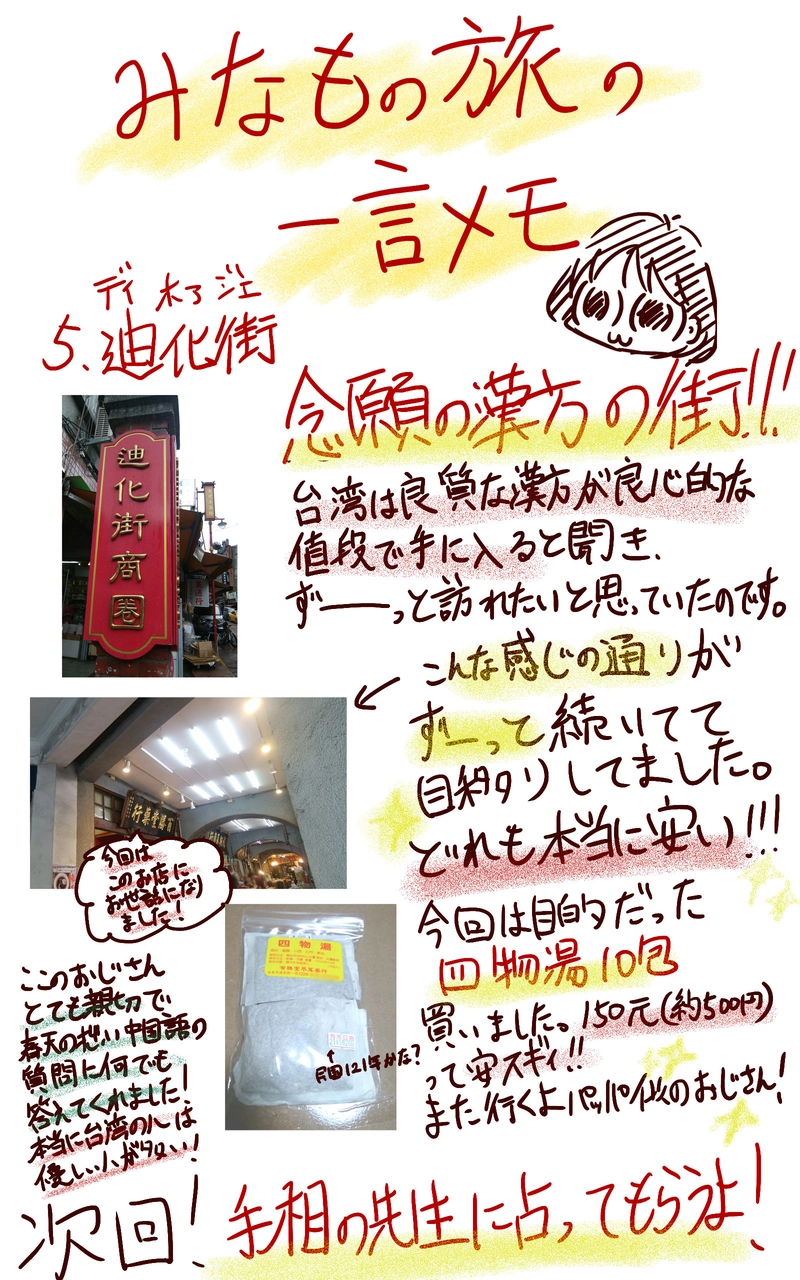 みなもの旅の
一言メモ
ディ ホア ジェ
5.迪化街
念願の漢方の街!!!
台湾は良質な漢方が良心的な
値段で手に入ると聞き、
ずーーっと訪れたいと思っていたのです。
迪化街商圏
こんな感じの通りが
ずーっと続いてて
目移りしてました。
どれも本当に安い!!!
今回は
このお店に
お世話になり
ました!
今回は目的だった
四物湯10包
買いました。150元(約500円)
って安スギィ!!
また行くよパッパ似のおじさん!
四物湯
民国121年かな?
ここのおじさん
とても親切で
春天の拙い中国語の
質問に何でも
答えてくれました!
本当に台湾の人は
優しい人が多い!
次回!手相の先生に占ってもらうよ!